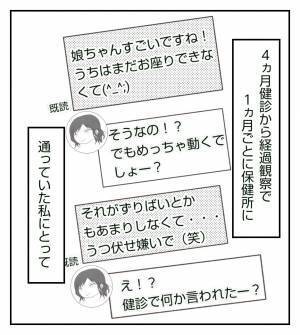 4ヵ月健診から経過観察で
1ヵ月ごとに保健所に
娘ちゃんすごいですね！
うちはまだお座りできな
くて(^_^;)
既読
そうなの！？
でもめっちゃ動くで
しょー？
それがずりばいとか
もあまりしなくて・・・
うつ伏せ嫌いで（笑）
既読
え！？
健診で何か言われたー？
通っていた私にとって